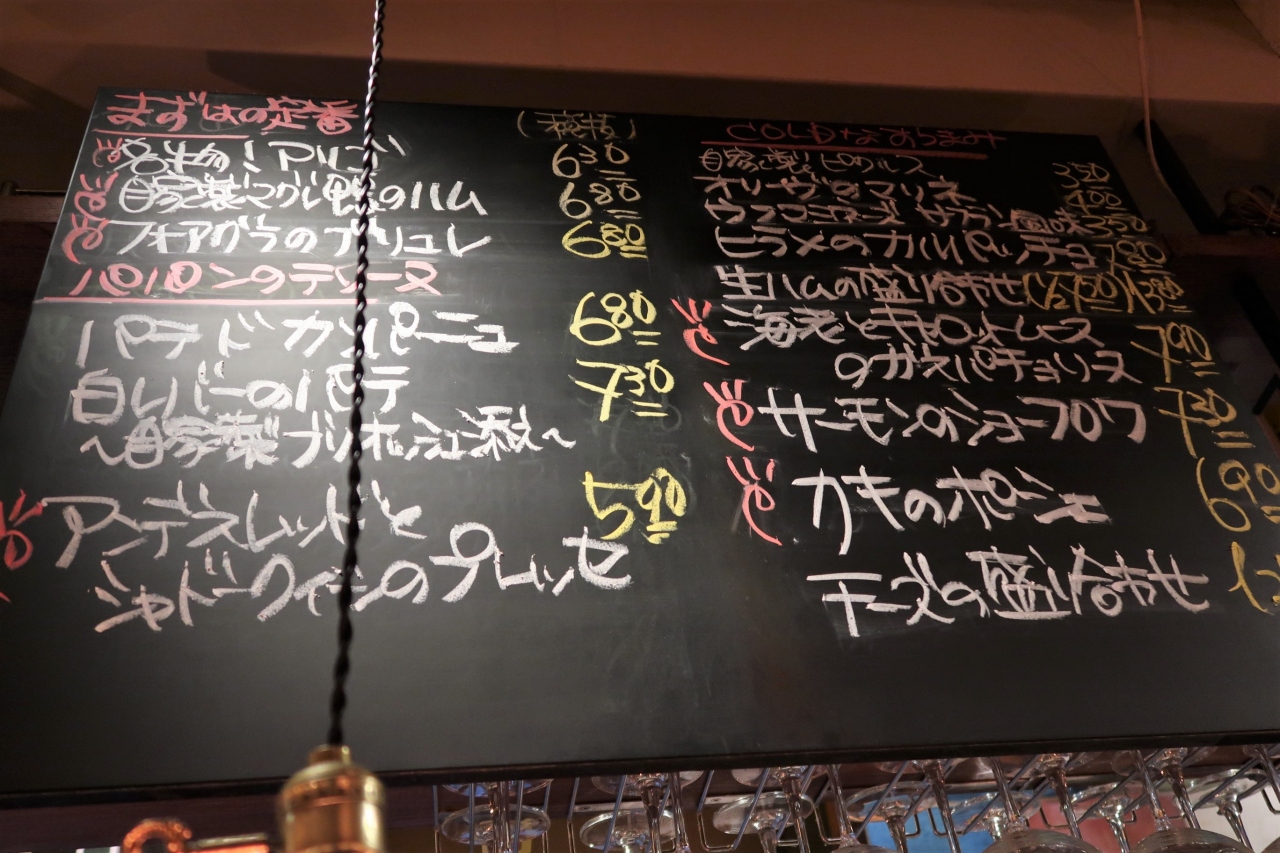 まずはの定番
(税抜)
名物！アリゴ 630
自家製マグレ鴨のハム 680
フォアグラのブリュレ 680
パロパロンのテリーヌ
パテ ド カンパーニュ 680
白レバーのパテ 730
～自家製ブリオッシュ添え～
アンデスレッドと 590
シャドークイーンのプレッセ
COLDなおつまみ
自家製ピクルス 350
オリーヴのマリネ 400
ウフマヨネーズ サフラン風味 350
ヒラメのカルパッチョ 780
生ハムの盛り合わせ 1380
海老と
のガスパチョソース 790
サーモンのショーフロワ 730
カキのポシェ 690
チーズの盛り合わせ